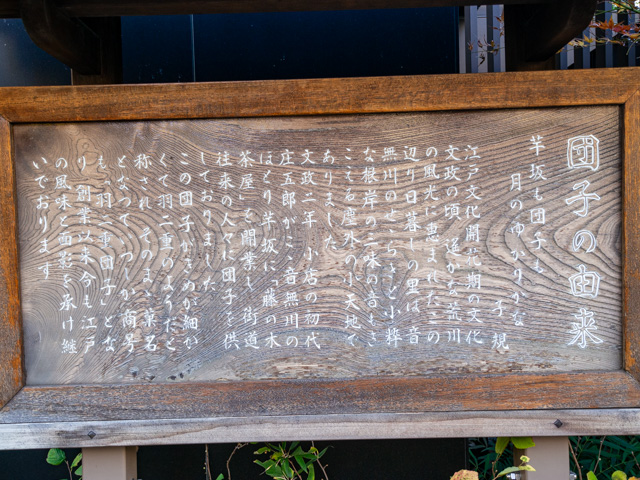 団子の由来
芋坂も団子も
月のゆかりかな
子規
江戸文化爛熟期の文化
文政の頃、遥かな荒川
の風光に恵まれたこの
辺り日暮しの里は、音
無川のせゝらぎと小粋
な根岸の三味の音もき
こえる塵外の小天地で
ありました。
文政二年、小店の初代
庄五郎がここ音無川の
ほとり芋坂に「藤の木
茶屋」を開業し、街道
往来の人々に団子を供
しておりました。
この団子がきめが細か
くて羽二重のようだと
称され、そのまゝ菓名
となって、いつしか商号
も「羽二重団子」とな
り、創業以来今も江戸
の風味と面影を承け継
いでおります。